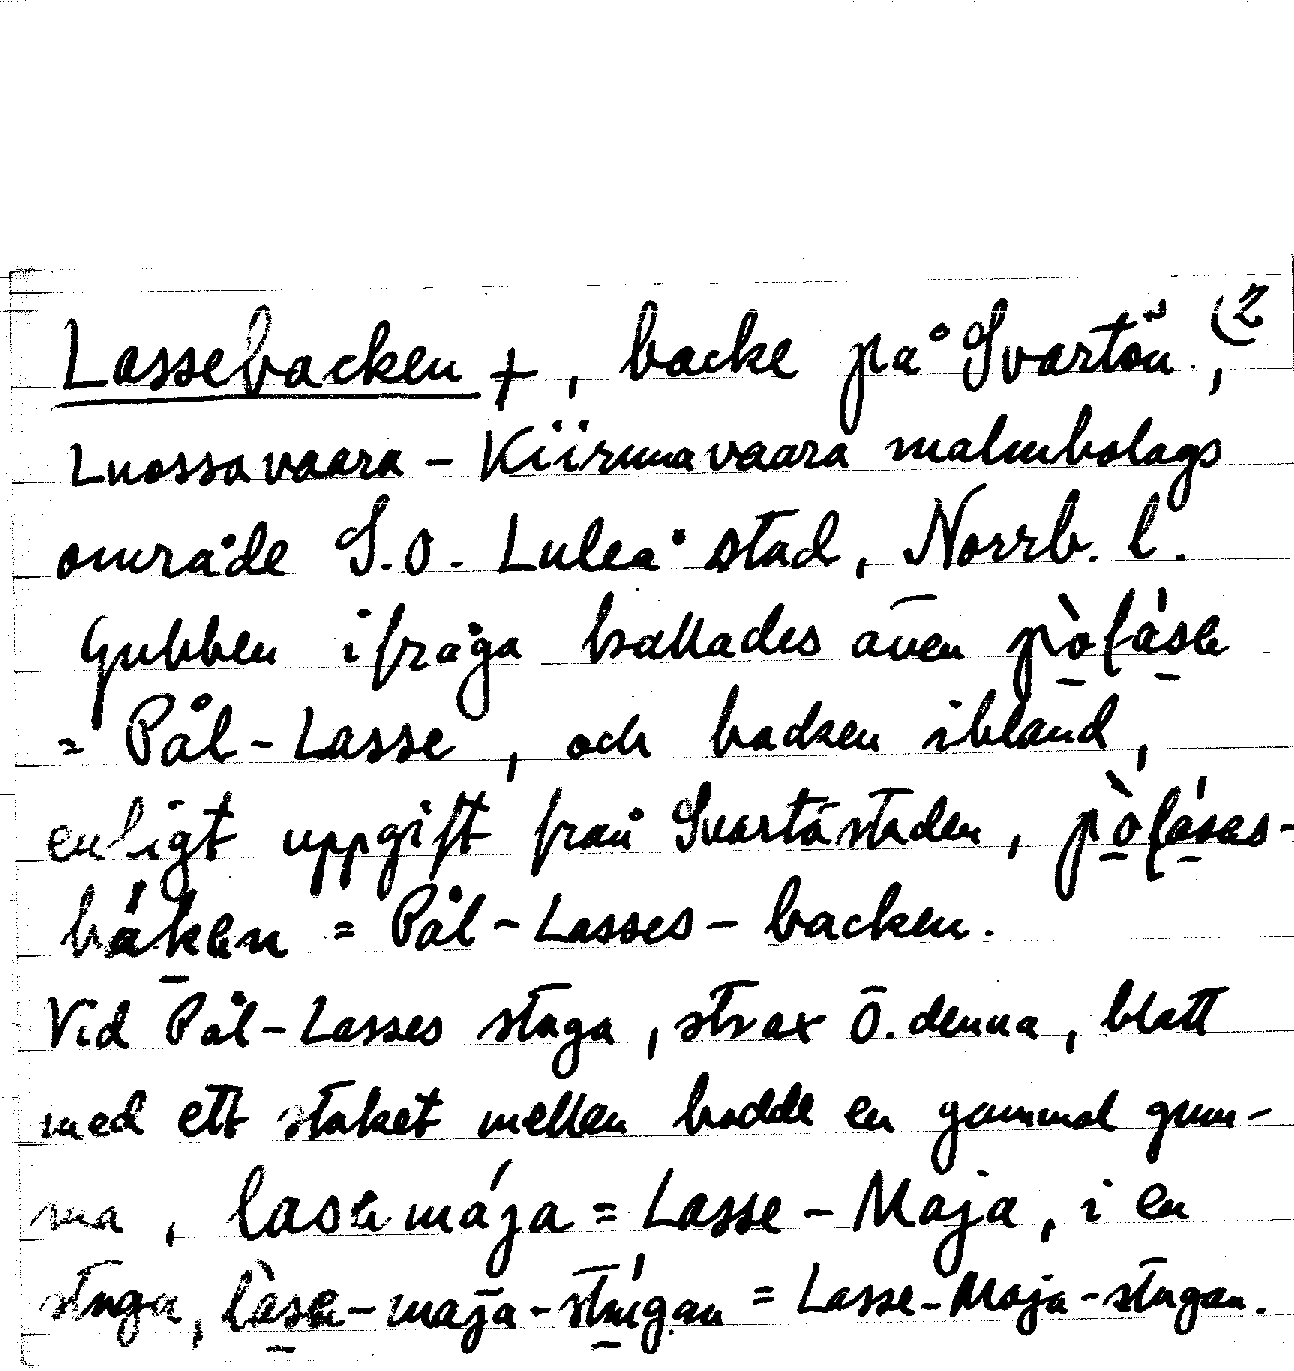 Lassebacken +, backe på Svartön, (2
Luossavaara - Kiirunavaara malmbolags
område S.O. Luleå stad, Norrb. l.
Gubben ifråga kallades även pòlásə
= Pål-Lasse, och backen ibland,
enligt uppgift från Svartöstaden, pòlásəs-
bákən = Pål-Lasses-backen.
Vid Pål-Lasses stuga, strax Ö. denna, blott
med ett staket mellan bodde en gammal gum-
ma, lasəmája = Lasse-Maja, i en
stuga, làsə-maja-stúgan = Lasse-Maja-stugan.